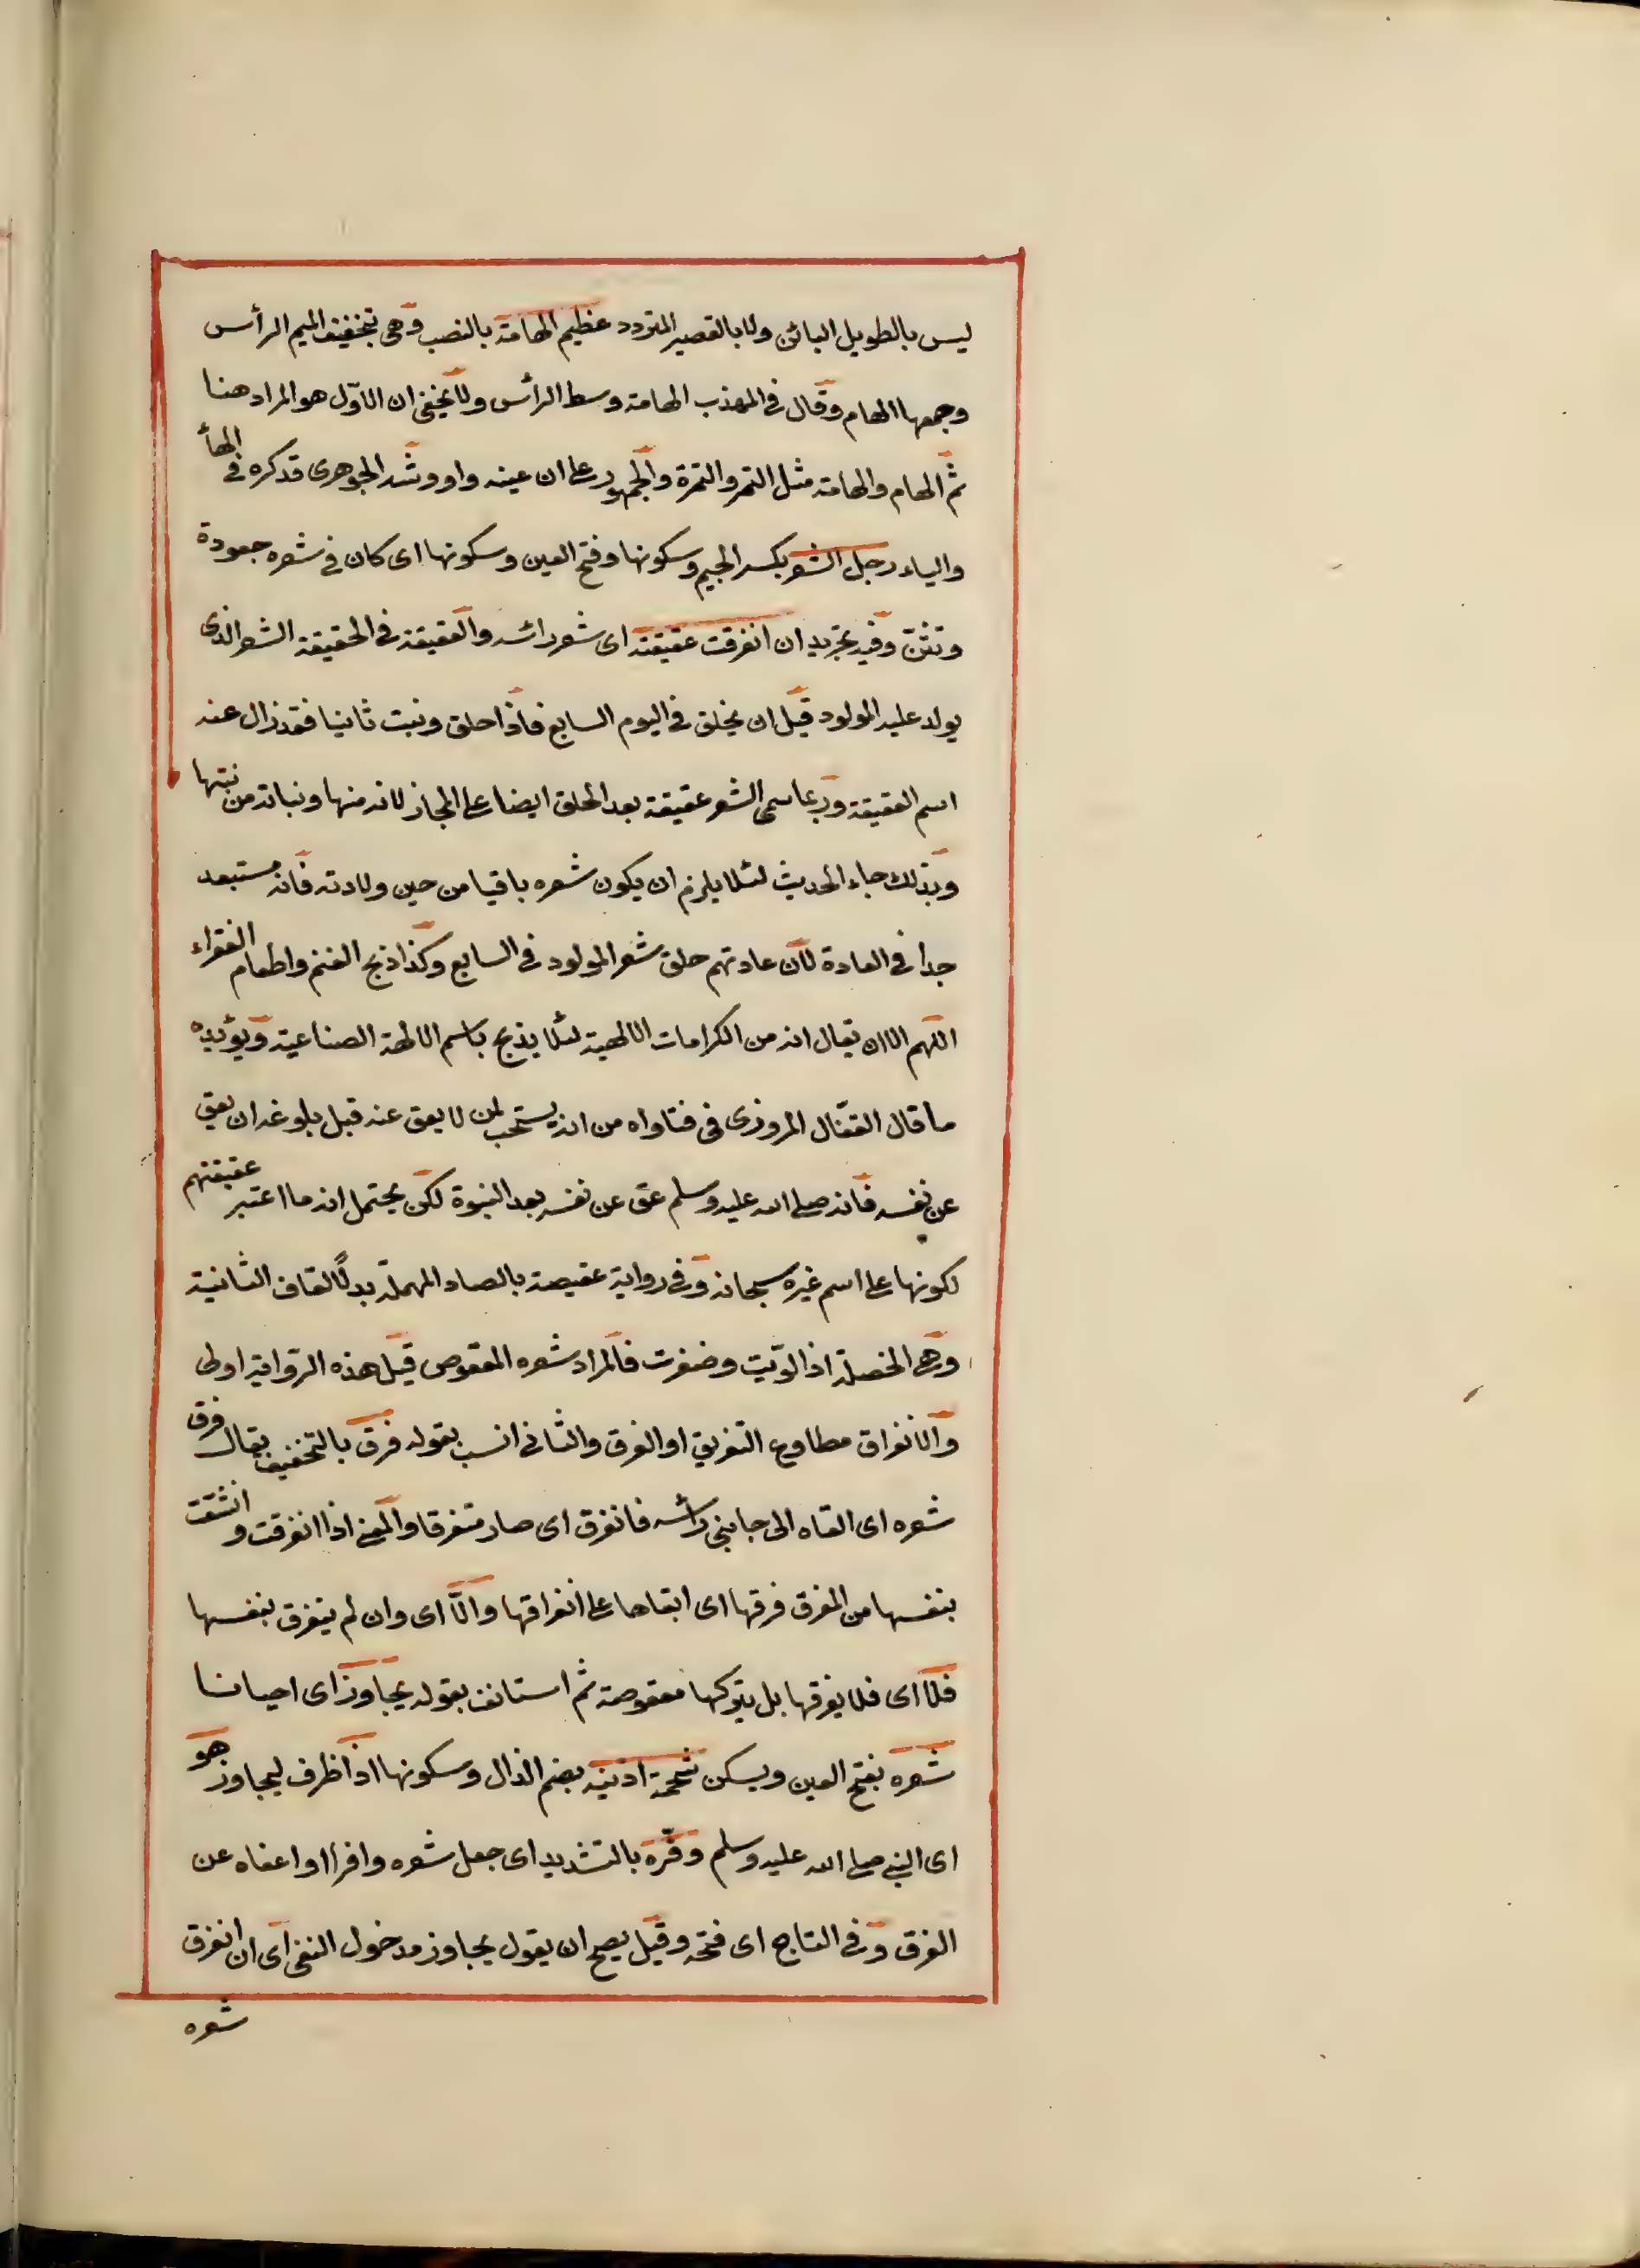 ليس بالطويل البائن ولا بالقصير المتردد عظيم الهامة بالنصب وهي بتخفيف الميم الرأس
وجمعها الهام وقال في المهذب الهامة وسط الرأس ولا يخفى ان الاول هو المراد هنا
ثم الهام والهامة مثل التمر والتمرة والجمهور على ان عينه واو وشذ الجوهري فذكره في الهاء
والياء رجل الشعر بكسر الجيم وسكونها وفتح العين وسكونها اى كان في شعره جعودة
وتثنّ وفيه تجريد ان انفرقت عقيقته اى شعر رأسه والعقيقة في الحقيقة الشعر الذي
يولد عليه المولود قبل ان يحلق في اليوم السابع فاذا حلق ونبت ثانيا فقد زال عنه
اسم العقيقة وربما سمى الشعر عقيقة بعد الحلق ايضا على المجاز لانه منها ونباته من نبتها
وبذلك جاء الحديث لئلا يلزم ان يكون شعره باقيا من حين ولادته فانه مستبعد
جدا في العادة لأن عادتهم حلق شعر المولود في السابع وكذا ذبح الغنم واطعام الفقراء
اللهم الا ان يقال انه من الكرامات الالهية لئلا يذبح باسم الالهة الصناعية ويؤيده
ما قال القفّال المروزى فى فتاواه من انه يستحب لمن لا يعق عنه قبل بلوغه ان يعق
عن نفسه فانه صلى الله عليه وسلم عق عن نفسه بعد النبوة لكن يحتمل انه ما اعتبر عقيقتهم
لكونها على اسم غيره سبحانه وفى رواية عقيصة بالصاد المهملة بدل القاف الثانية
وهي الخصلة اذا لوّيت وضفرت فالمراد شعره المعقوص قيل هذه الرّواية اولى
والانفراق مطاوع التفريق او الفرق والثانى انسب بقوله فرق بالتخفيف يقال فرق
شعره اى القاه الى جانبي رأسه فانفرق اى صار متفرقا والمعنى اذا انفرقت وانشقت
بنفسها من المفرق فرقها اى ابقاها على انفراقها والّا اى وان لم ينفرق بنفسها
فلا اى فلا يفرقها بل يتركها معقوصة ثم استانف بقوله يجاوز اى احيانا
شعره بفتح العين ويسكن شحمة اذنيه بضم الذال وسكونها اذا ظرف ليجاوز هو
اى النبي صلى الله عليه وسلم وفّره بالتشديد اى جعل شعره وافرا او اعفاه عن
الفرق وفى التاج اى فتحه وقيل يصح ان يقول يجاوز مدخول النفى اى ان انفرق
شعره